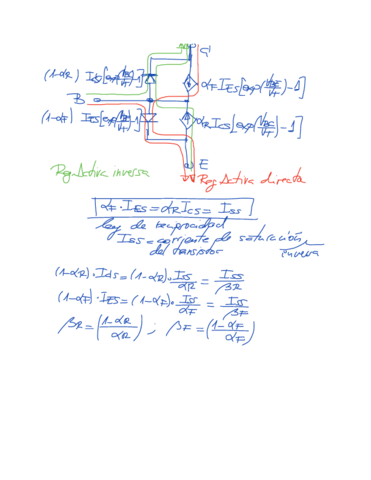 C
(1-αR) ICS[exp(VBC/VT)-1]
αF IES[exp(VBE/VT)-1]
B
(1-αF) IES[exp(VBE/VT)-1]
αR ICS[exp(VBC/VT)-1]
E
Reg Activa inversa
Reg Activa directa
αF·IES=αR ICS= ISS
ley de reciprocidad
ISS=corriente de saturación
del transistor inversa
(1-αR)·ICS=(1-αR)·ISS/αR=ISS/βR
(1-αF)·IES=(1-αF)·ISS/αF=ISS/βF
βR=(1-αR/αR) ; βF=(1-αF/αF)